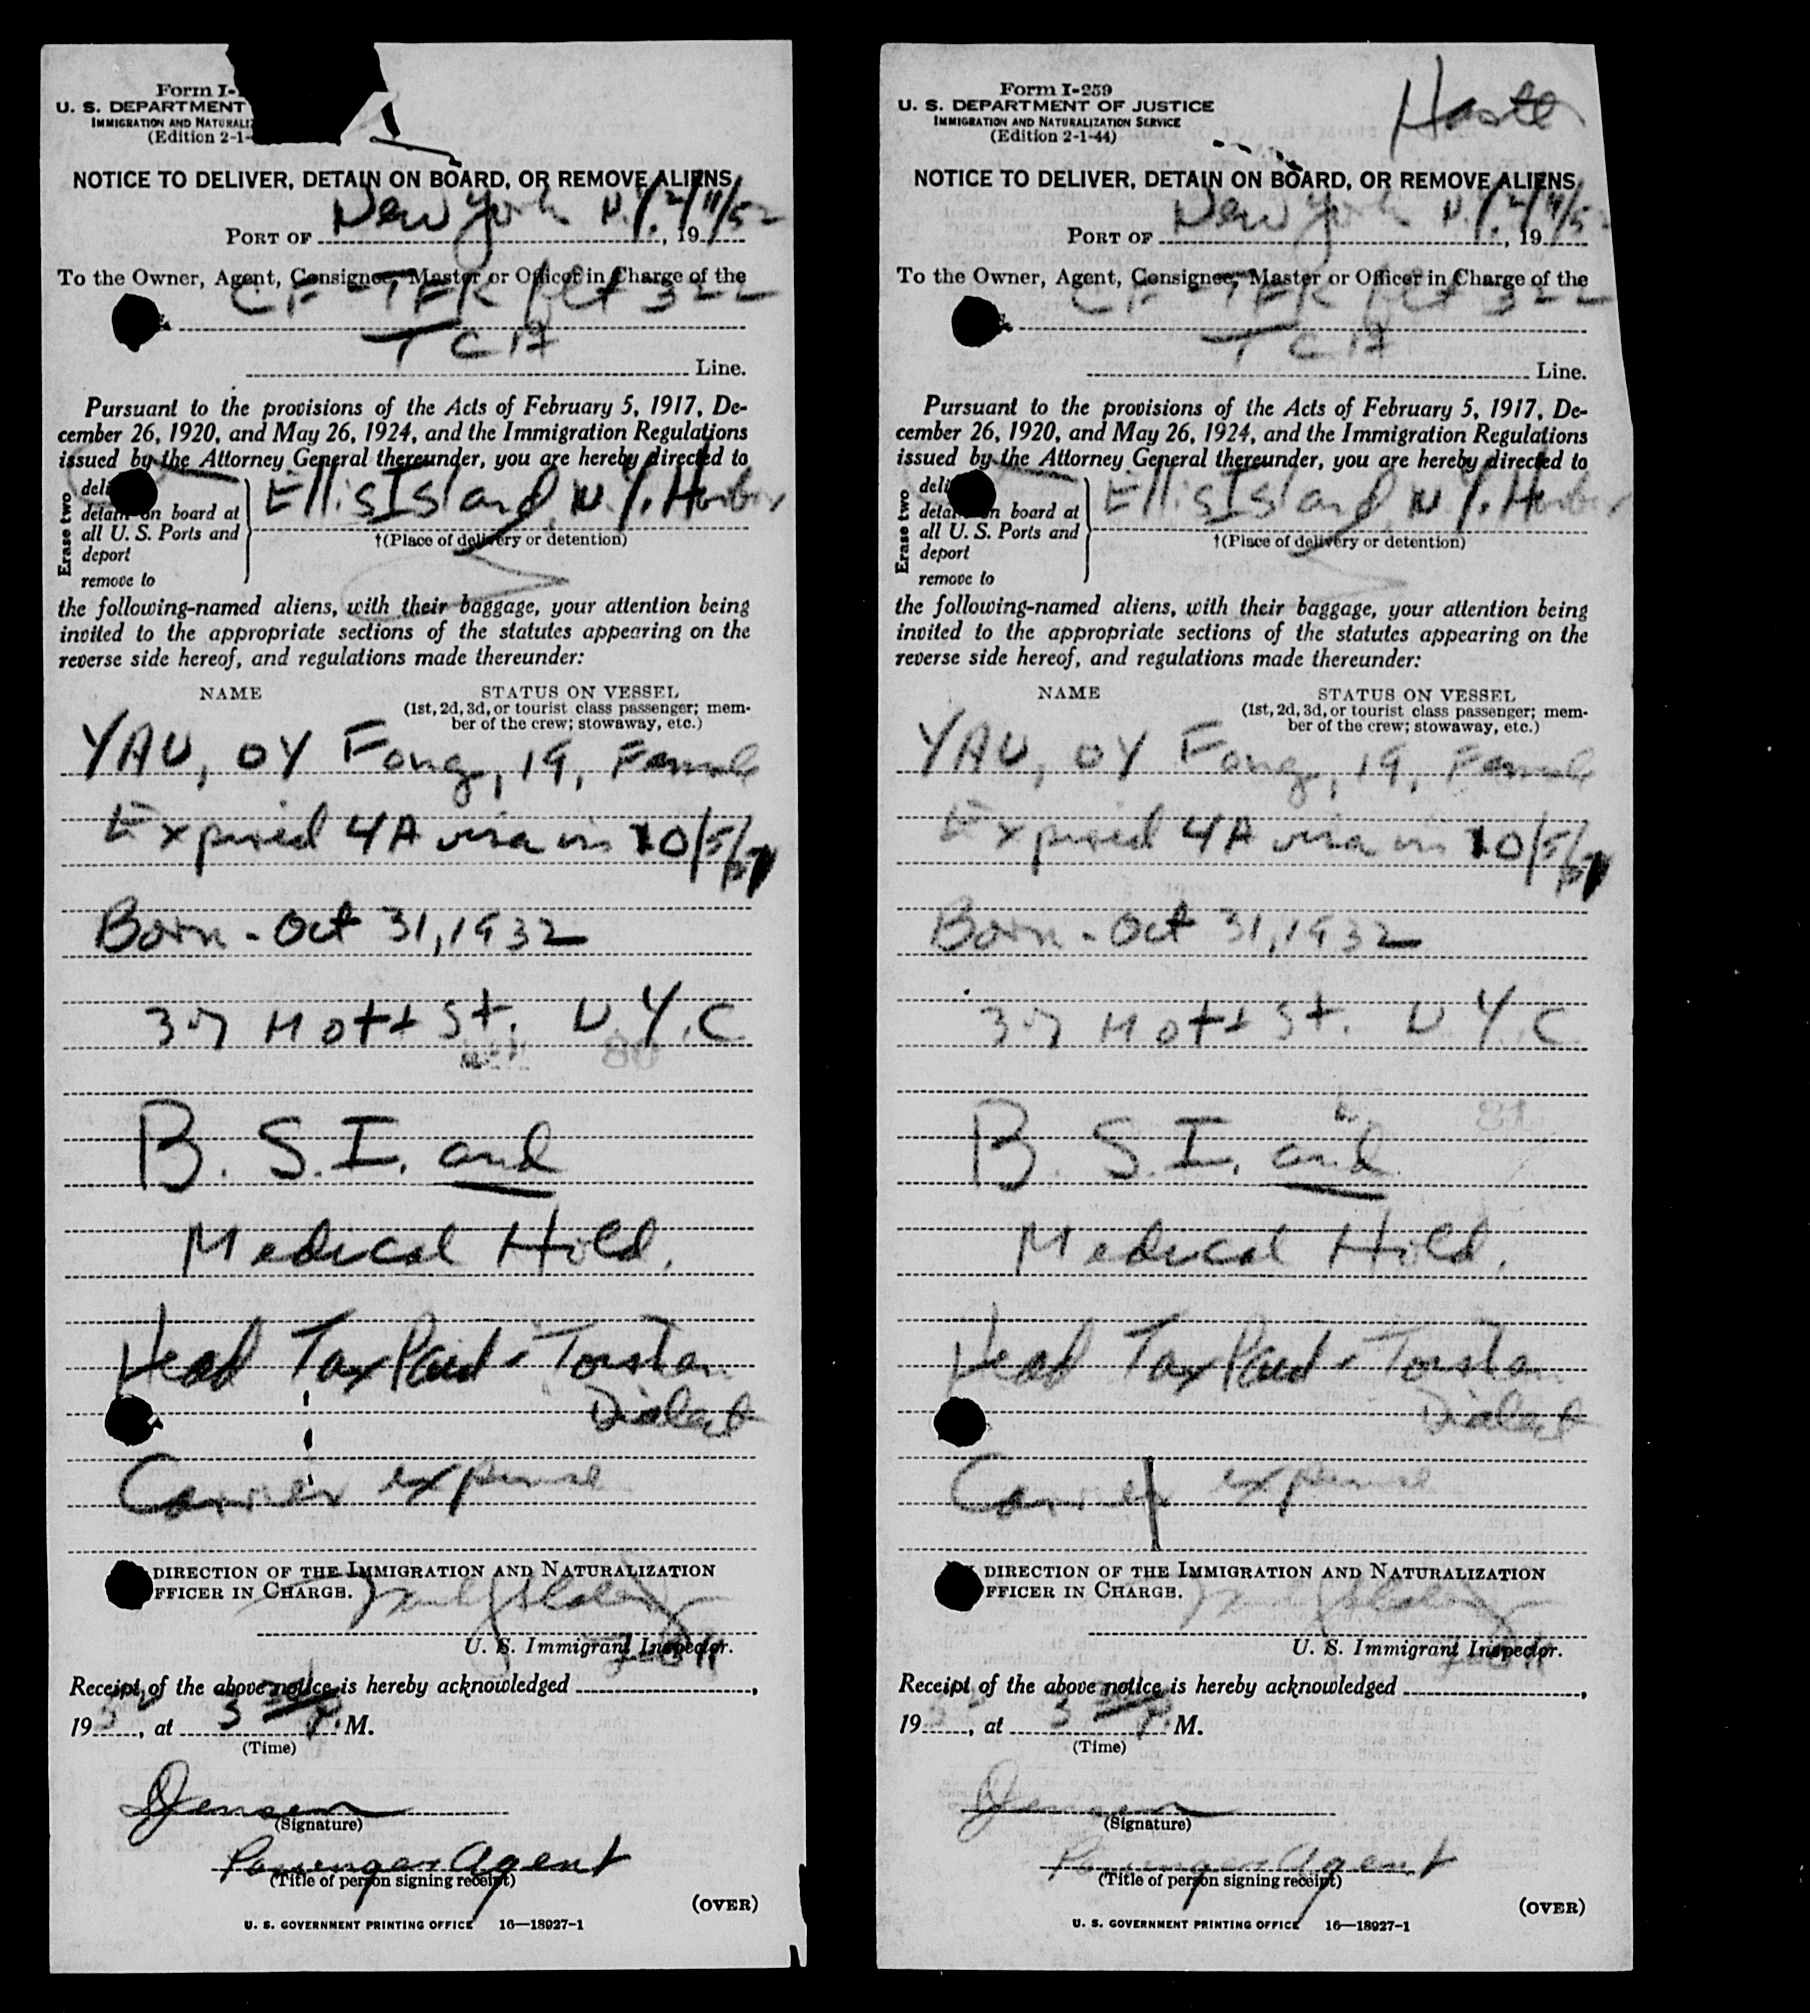 Form I-
U. S. DEPARTMENT
IMMIGRATION AND NATURALIZ
(Edition 2-1-
NOTICE TO DELIVER, DETAIN ON BOARD, OR REMOVE ALIENS
PORT OF New York N.Y. 2/11/52, 19
To the Owner, Agent, Consignee, Master or Officer in Charge of the
CF-TFK flt 322
TCA
Line.
Pursuant to the provisions of the Acts of February 5, 1917, De-
cember 26, 1920, and May 26, 1924, and the Immigration Regulations
issued by the Attorney General thereunder, you are hereby directed to
Erase two
deli
detain on board at
all U. S. Ports and
deport
remove to
Ellis Island, N.Y. Harbor
†(Place of delivery or detention)
the following-named aliens, with their baggage, your attention being
invited to the appropriate sections of the statutes appearing on the
reverse side hereof, and regulations made thereunder:
NAME
STATUS ON VESSEL
(1st, 2d, 3d, or tourist class passenger; mem-
ber of the crew; stowaway, etc.)
YAU, OY Fong, 19, Female
Expired 4A visa in 10/5/
Born - Oct 31, 1932
37 Mott St. N.Y.C
B. S. I. and
Medical Hold.
Head Tax Paid - Toishan
Dialect
Carrier expense
DIRECTION OF THE IMMIGRATION AND NATURALIZATION
FFICER IN CHARGE.
U. S. Immigrant Inspector.
Receipt of the above notice is hereby acknowledged
19 52, at 3 P. M.
(Time)
Jensen
(Signature)
Passenger Agent
(Title of person signing receipt)
(OVER)
U. S. GOVERNMENT PRINTING OFFICE 16—18927-1
Form I-259
U. S. DEPARTMENT OF JUSTICE
IMMIGRATION AND NATURALIZATION SERVICE
(Edition 2-1-44)
NOTICE TO DELIVER, DETAIN ON BOARD, OR REMOVE ALIENS
PORT OF New York N.Y. 2/11/52, 19
To the Owner, Agent, Consignee, Master or Officer in Charge of the
CF-TFK flt 322
TCA
Line.
Pursuant to the provisions of the Acts of February 5, 1917, De-
cember 26, 1920, and May 26, 1924, and the Immigration Regulations
issued by the Attorney General thereunder, you are hereby directed to
Erase two
deli
detain on board at
all U. S. Ports and
deport
remove to
Ellis Island, N.Y. Harbor
†(Place of delivery or detention)
the following-named aliens, with their baggage, your attention being
invited to the appropriate sections of the statutes appearing on the
reverse side hereof, and regulations made thereunder:
NAME
STATUS ON VESSEL
(1st, 2d, 3d, or tourist class passenger; mem-
ber of the crew; stowaway, etc.)
YAU, OY Fong, 19, Female
Expired 4A visa in 10/5/
Born - Oct 31, 1932
37 Mott St. N.Y.C
B. S. I. and
Medical Hold.
Head Tax Paid - Toishan
Dialect
Carrier expense
DIRECTION OF THE IMMIGRATION AND NATURALIZATION
FFICER IN CHARGE.
U. S. Immigrant Inspector.
Receipt of the above notice is hereby acknowledged
19 52, at 3 P. M.
(Time)
Jensen
(Signature)
Passenger Agent
(Title of person signing receipt)
(OVER)
U. S. GOVERNMENT PRINTING OFFICE 16—18927-1